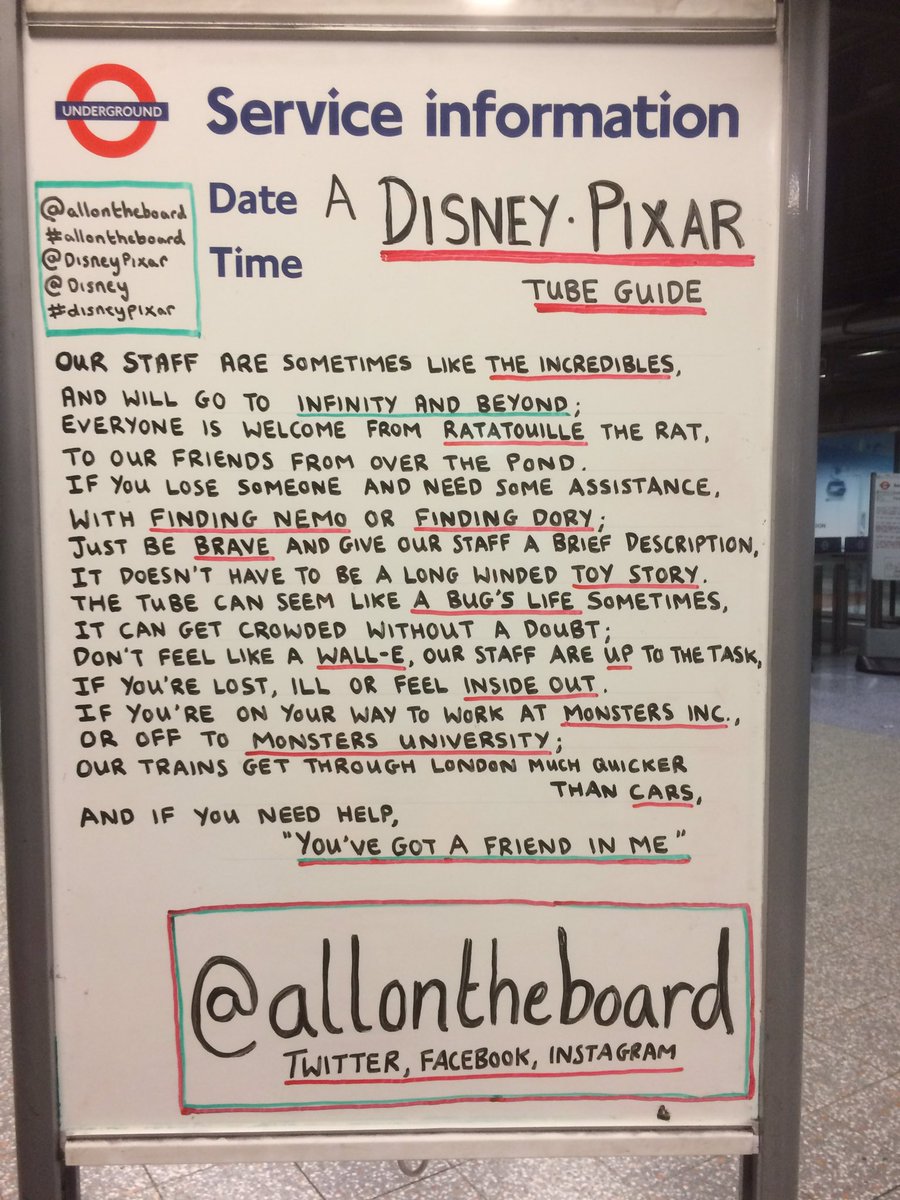 UNDERGROUND
Service information
@allontheboard
#allontheboard
@DisneyPixar
@Disney
#disneypixar
Date A DISNEY·PIXAR
Time
TUBE GUIDE
OUR STAFF ARE SOMETIMES LIKE THE INCREDIBLES,
AND WILL GO TO INFINITY AND BEYOND;
EVERYONE IS WELCOME FROM RATATOUILLE THE RAT,
TO OUR FRIENDS FROM OVER THE POND.
IF YOU LOSE SOMEONE AND NEED SOME ASSISTANCE,
WITH FINDING NEMO OR FINDING DORY;
JUST BE BRAVE AND GIVE OUR STAFF A BRIEF DESCRIPTION,
IT DOESN'T HAVE TO BE A LONG WINDED TOY STORY.
THE TUBE CAN SEEM LIKE A BUG'S LIFE SOMETIMES,
IT CAN GET CROWDED WITHOUT A DOUBT;
DON'T FEEL LIKE A WALL-E, OUR STAFF ARE UP TO THE TASK,
IF YOU'RE LOST, ILL OR FEEL INSIDE OUT.
IF YOU'RE ON YOUR WAY TO WORK AT MONSTERS INC.,
OR OFF TO MONSTERS UNIVERSITY;
OUR TRAINS GET THROUGH LONDON MUCH QUICKER
THAN CARS,
AND IF YOU NEED HELP,
"YOU'VE GOT A FRIEND IN ME"
@allontheboard
TWITTER, FACEBOOK, INSTAGRAM